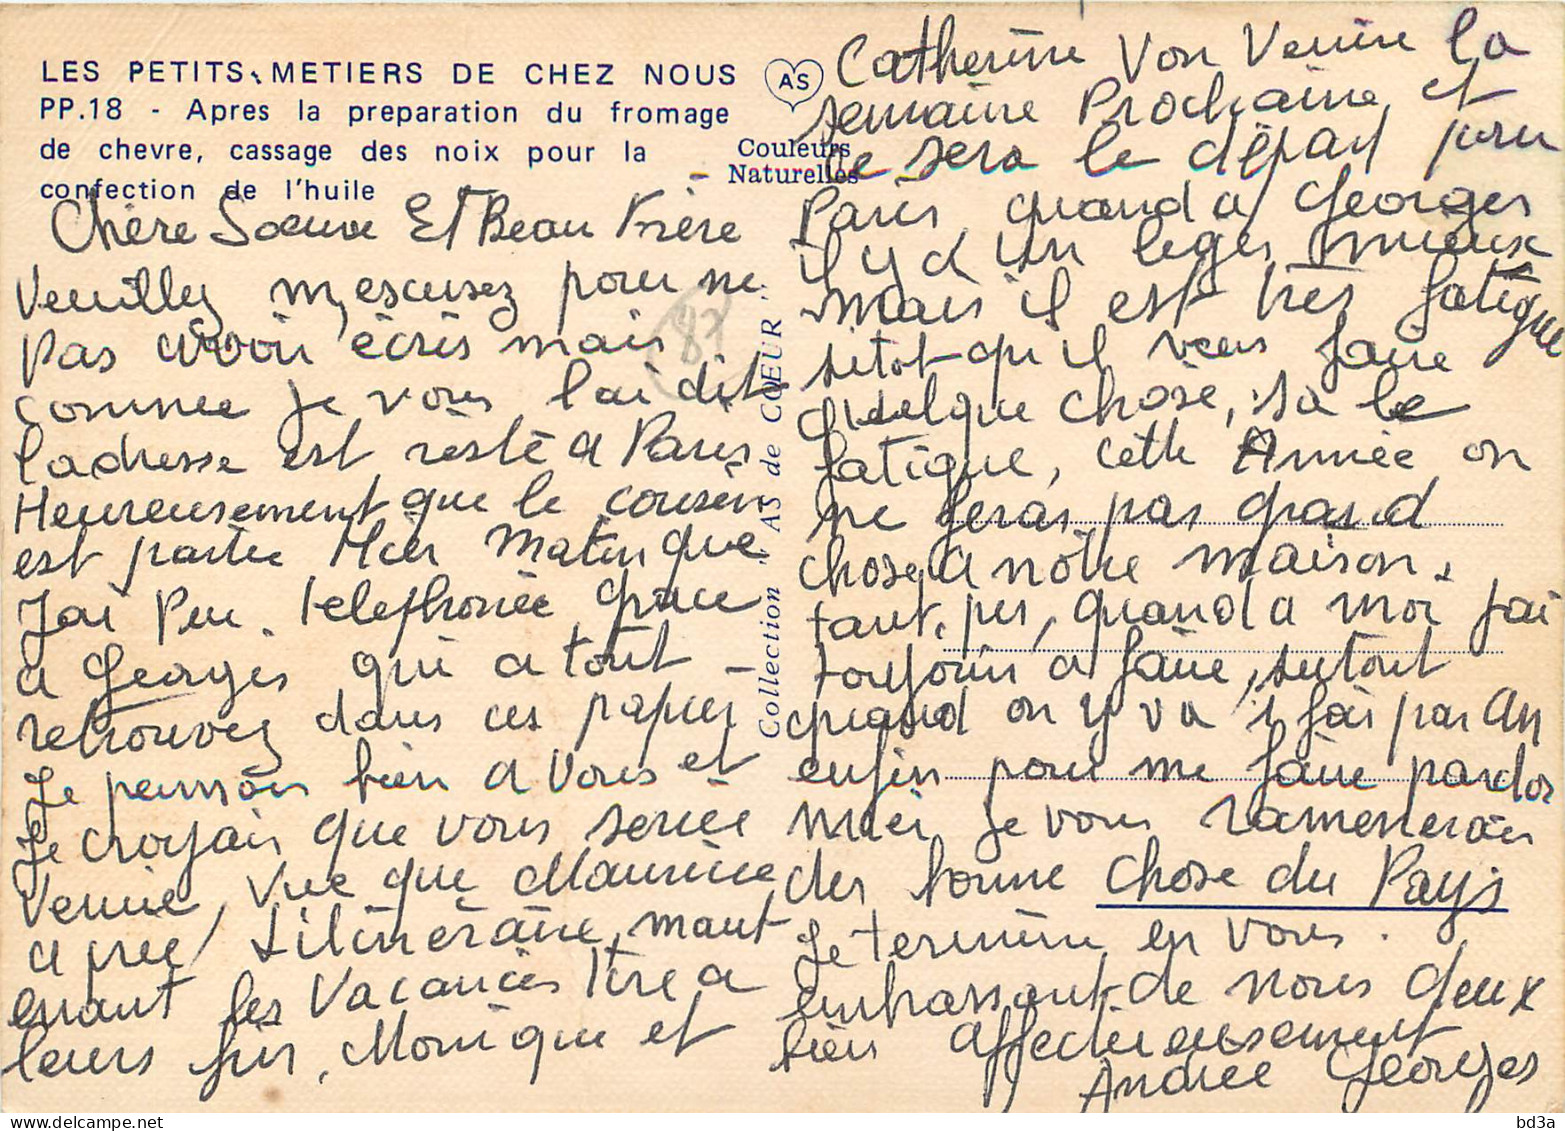 LES PETITS METIERS DE CHEZ NOUS
PP.18 - Apres la preparation du fromage
de chevre, cassage des noix pour la
confection de l'huile
AS
Couleurs
Naturelles
Collection "AS de CŒUR"
87
Chère Soeure Et Beau Frère
Veuilley m,escusez pour ne
pas avoir écris mais
comme je vous l'ai dit
l'adresse est resté a Paris
Heureusement que le cousin
est partie Hier Matin que
J'ai Peu Telephonée grace
a Georges qui a tout
retrouvez dans ces papier
Je pensson bien a Vous et
Je croyais que vous seriée
Venue, Vue que Maurice
a pree l'itinéraire, maint
enant les Vacances tire a
leurs fin, Monique et
Catherine Von Venire la
semaine Prochaine, et
ce sera le départ pour
Paris, quand a Georges
il y a un leger mieux
mais il est très fatigue
sitot qu'il veus faire
quelque chose, sa le
fatigue, cette Année on
ne feras pas grand
chose a notre maison.
tant, pis, quand a moi j'ai
toujours a faire, surtout
quand on y va 1 fois par an
enfin pour me faire pardon
nner je vous ramenerais
des bonne chose du Pays
Je termine en vous
embrassant de nous deux
bien affectueusement
Andrée Georges
bd3a